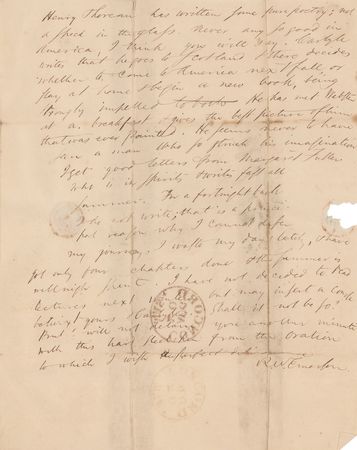 Henry Thoreau has written some pure poetry; not
a speck in the glass. never any so good in
America, I think you will say. Carlyle
writes that he goes to Scotland & there decides
whether to come to America next fall, or
stay at home & begin a new book, being
strongly impelled to both. He has met Webster
at a breakfast & gives the best picture of him
that was ever painted. He seems never to have
seen a man who so struck his imagination
I get good letters from Margaret Fuller
who is in spirits & writes fast all
summer. For a fortnight back
I do not write; that is a princi
pal reason why I cannot defer
my journey. I waste my days lately, & have
got only four chapters done & the summer is
wellnigh spent. I have not decided to read
lectures next but may insert a couple
betwixt yours Shall it not be so?
But I will not detain you another minute
with this from the Oration
to which I
R. W. Emerson.
CONCORD